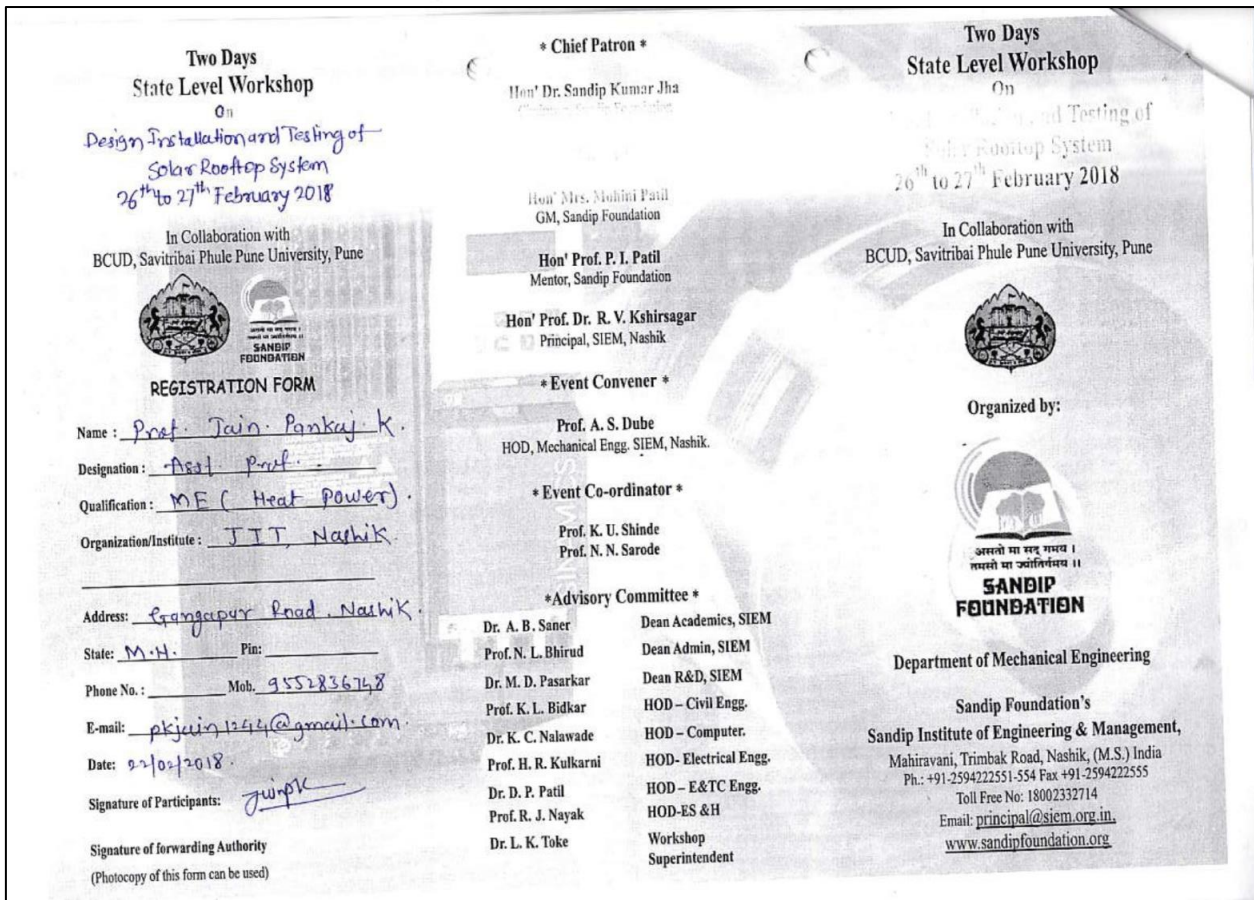 Two Days
State Level Workshop
On
Design Installation and Testing of
Solar Rooftop System
26th to 27th February 2018
In Collaboration with
BCUD, Savitribai Phule Pune University, Pune
असतो मा सद् गमय ।
तमसो मा ज्योतिर्गमय ॥
SANDIP
FOUNDATION
REGISTRATION FORM
Name : Prof. Jain. Pankaj K.
Designation : Asst. Prof.
Qualification : ME ( Heat Power) .
Organization/Institute : JIT, Nashik.
Address: Gangapur Road. Nashik.
State: M.H. Pin:
Phone No. : Mob. 9552836748
E-mail: pkjain1244@gmail.com.
Date: 22/02/2018.
Signature of Participants:
Signature of forwarding Authority
(Photocopy of this form can be used)
* Chief Patron *
Hon' Dr. Sandip Kumar Jha
Hon' Mrs. Mohini Patil
GM, Sandip Foundation
Hon' Prof. P. I. Patil
Mentor, Sandip Foundation
Hon' Prof. Dr. R. V. Kshirsagar
Principal, SIEM, Nashik
* Event Convener *
Prof. A. S. Dube
HOD, Mechanical Engg. SIEM, Nashik.
* Event Co-ordinator *
Prof. K. U. Shinde
Prof. N. N. Sarode
*Advisory Committee *
Dr. A. B. Saner Dean Academics, SIEM
Prof. N. L. Bhirud Dean Admin, SIEM
Dr. M. D. Pasarkar Dean R&D, SIEM
Prof. K. L. Bidkar HOD – Civil Engg.
Dr. K. C. Nalawade HOD – Computer.
Prof. H. R. Kulkarni HOD- Electrical Engg.
Dr. D. P. Patil HOD – E&TC Engg.
Prof. R. J. Nayak HOD-ES &H
Dr. L. K. Toke Workshop
Superintendent
Two Days
State Level Workshop
On
and Testing of
Solar Rooftop System
26th to 27th February 2018
In Collaboration with
BCUD, Savitribai Phule Pune University, Pune
Organized by:
असतो मा सद् गमय ।
तमसो मा ज्योतिर्गमय ॥
SANDIP
FOUNDATION
Department of Mechanical Engineering
Sandip Foundation's
Sandip Institute of Engineering & Management,
Mahiravani, Trimbak Road, Nashik, (M.S.) India
Ph.: +91-2594222551-554 Fax +91-2594222555
Toll Free No: 18002332714
Email: principal@siem.org.in,
www.sandipfoundation.org